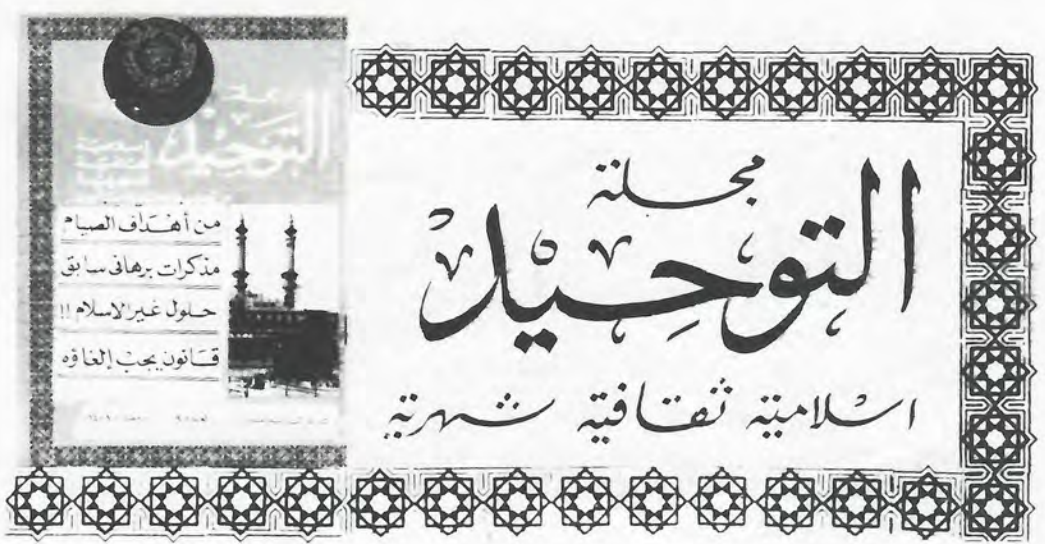 مجلة
التوحيد
اسلامية ثقافية شهرية
التوحيد
من أهداف الصيام
مذكرات برهانى سابق
حلول غير الاسلام !!
قانون يجب إلغاؤه